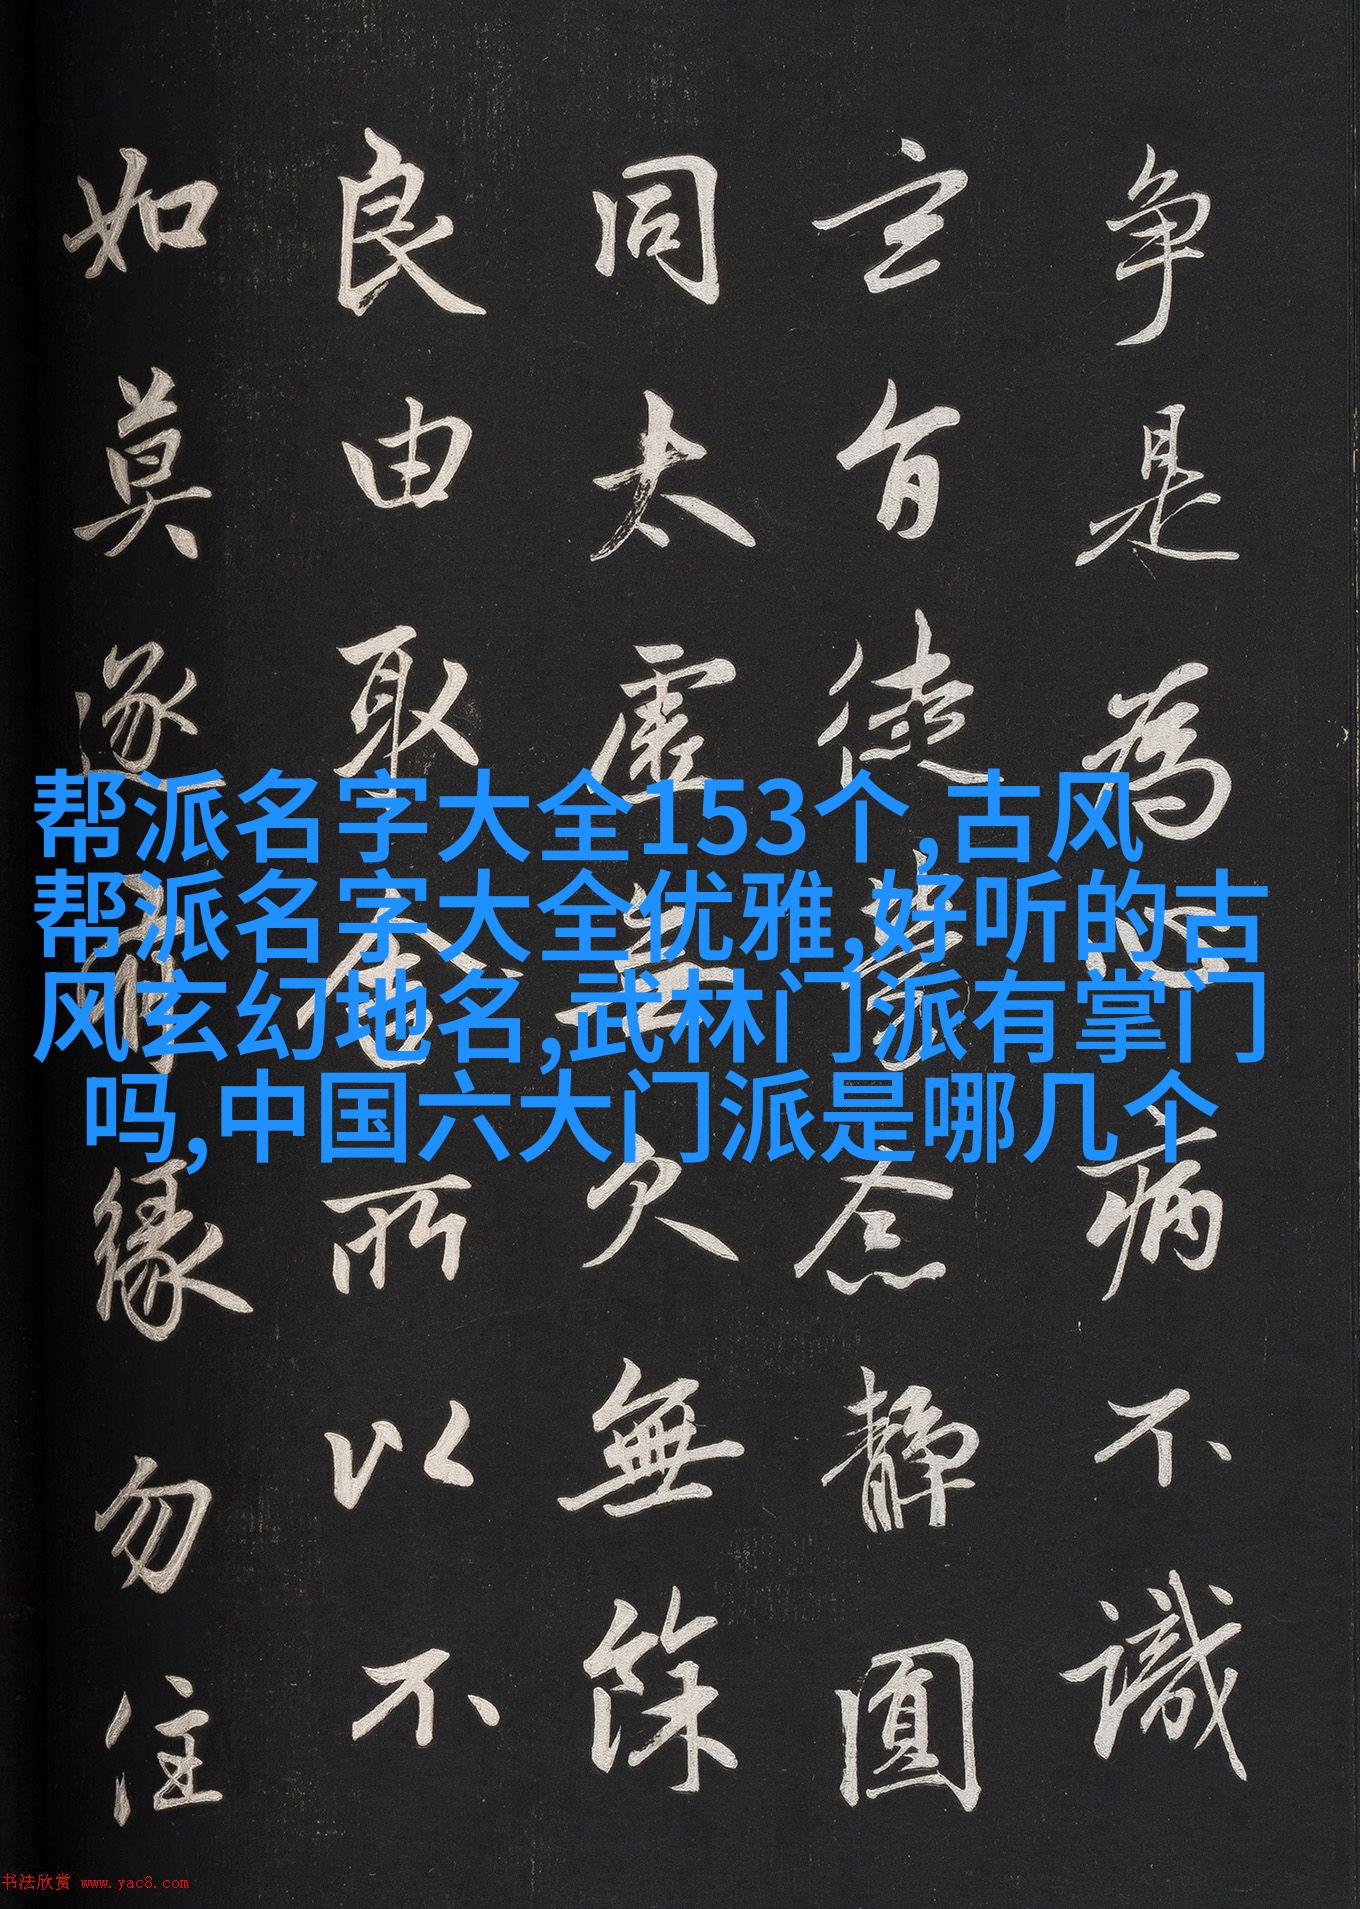 争是為心病不識
玄旨徒勞念靜圓
同太虛無欠無餘
良由取舍所以不
如莫逐有緣勿住
帮派名字大全153个,古风
帮派名字大全优雅,好听的古
风玄幻地名,武林门派有掌门
吗,中国六大门派是哪几个
书法欣赏 www.yac8.com